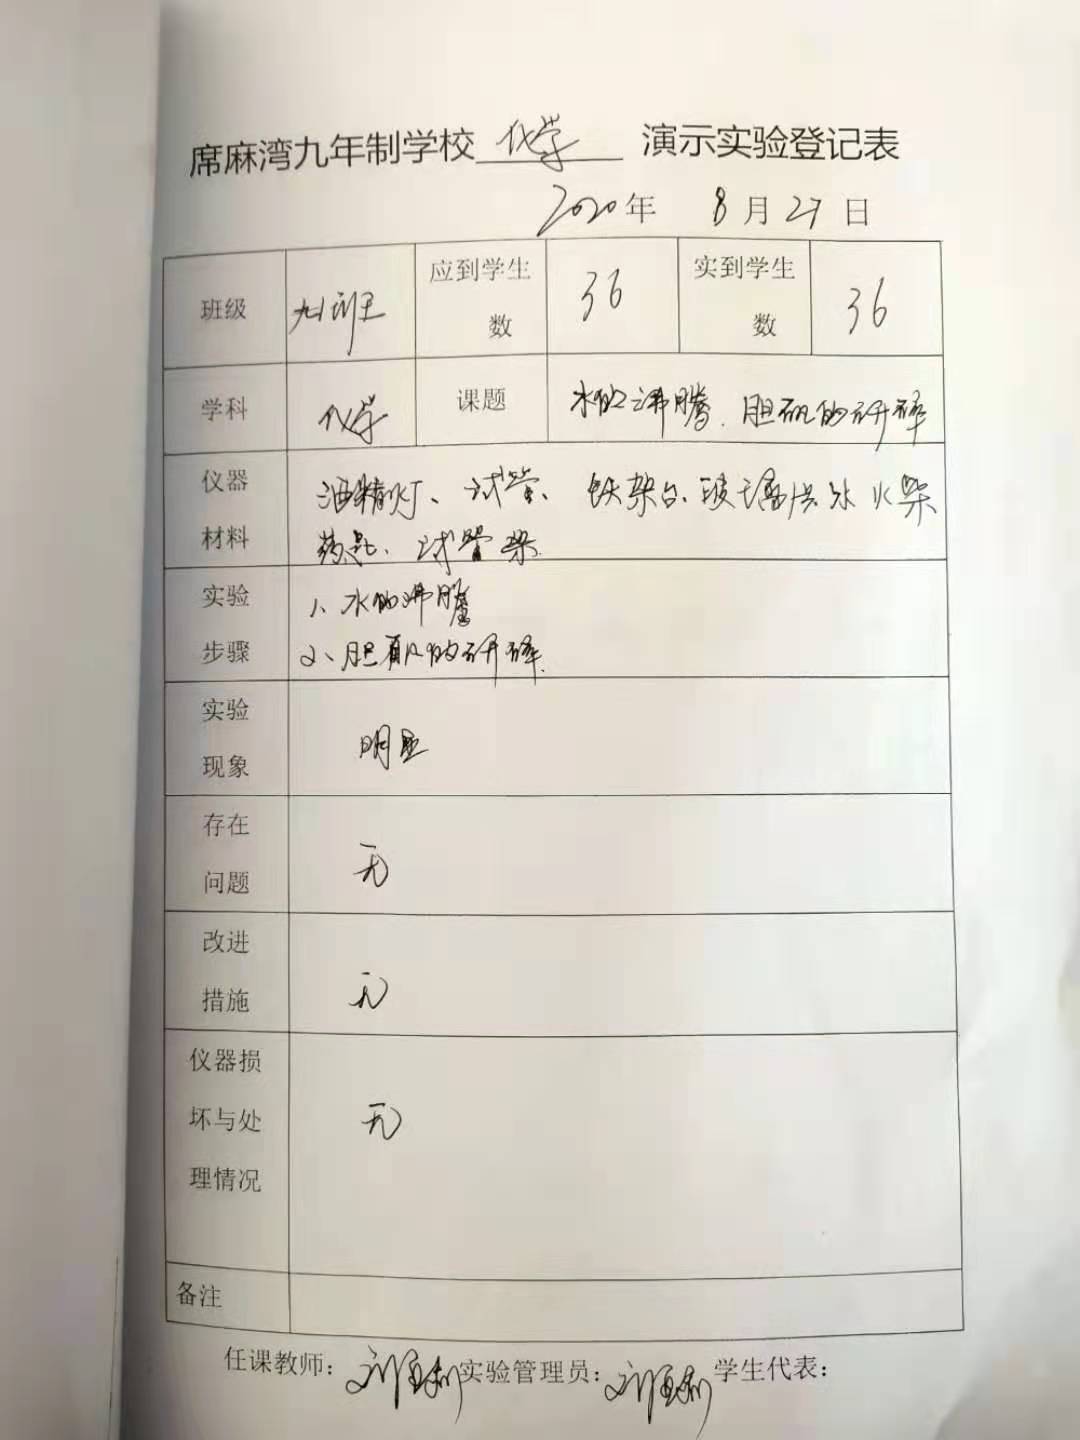 席麻湾九年制学校 化学 演示实验登记表
2020年 8月27日
班级 九班 应到学生数 36 实到学生数 36
学科 化学 课题 水的沸腾、胆矾的研碎
仪器材料 酒精灯、试管、铁架台、玻璃片 水 火柴
药匙、试管架
实验步骤 1、水的沸腾
2、胆矾的研碎
实验现象 明显
存在问题 无
改进措施 无
仪器损坏与处理情况 无
备注
任课教师: 实验管理员: 学生代表: